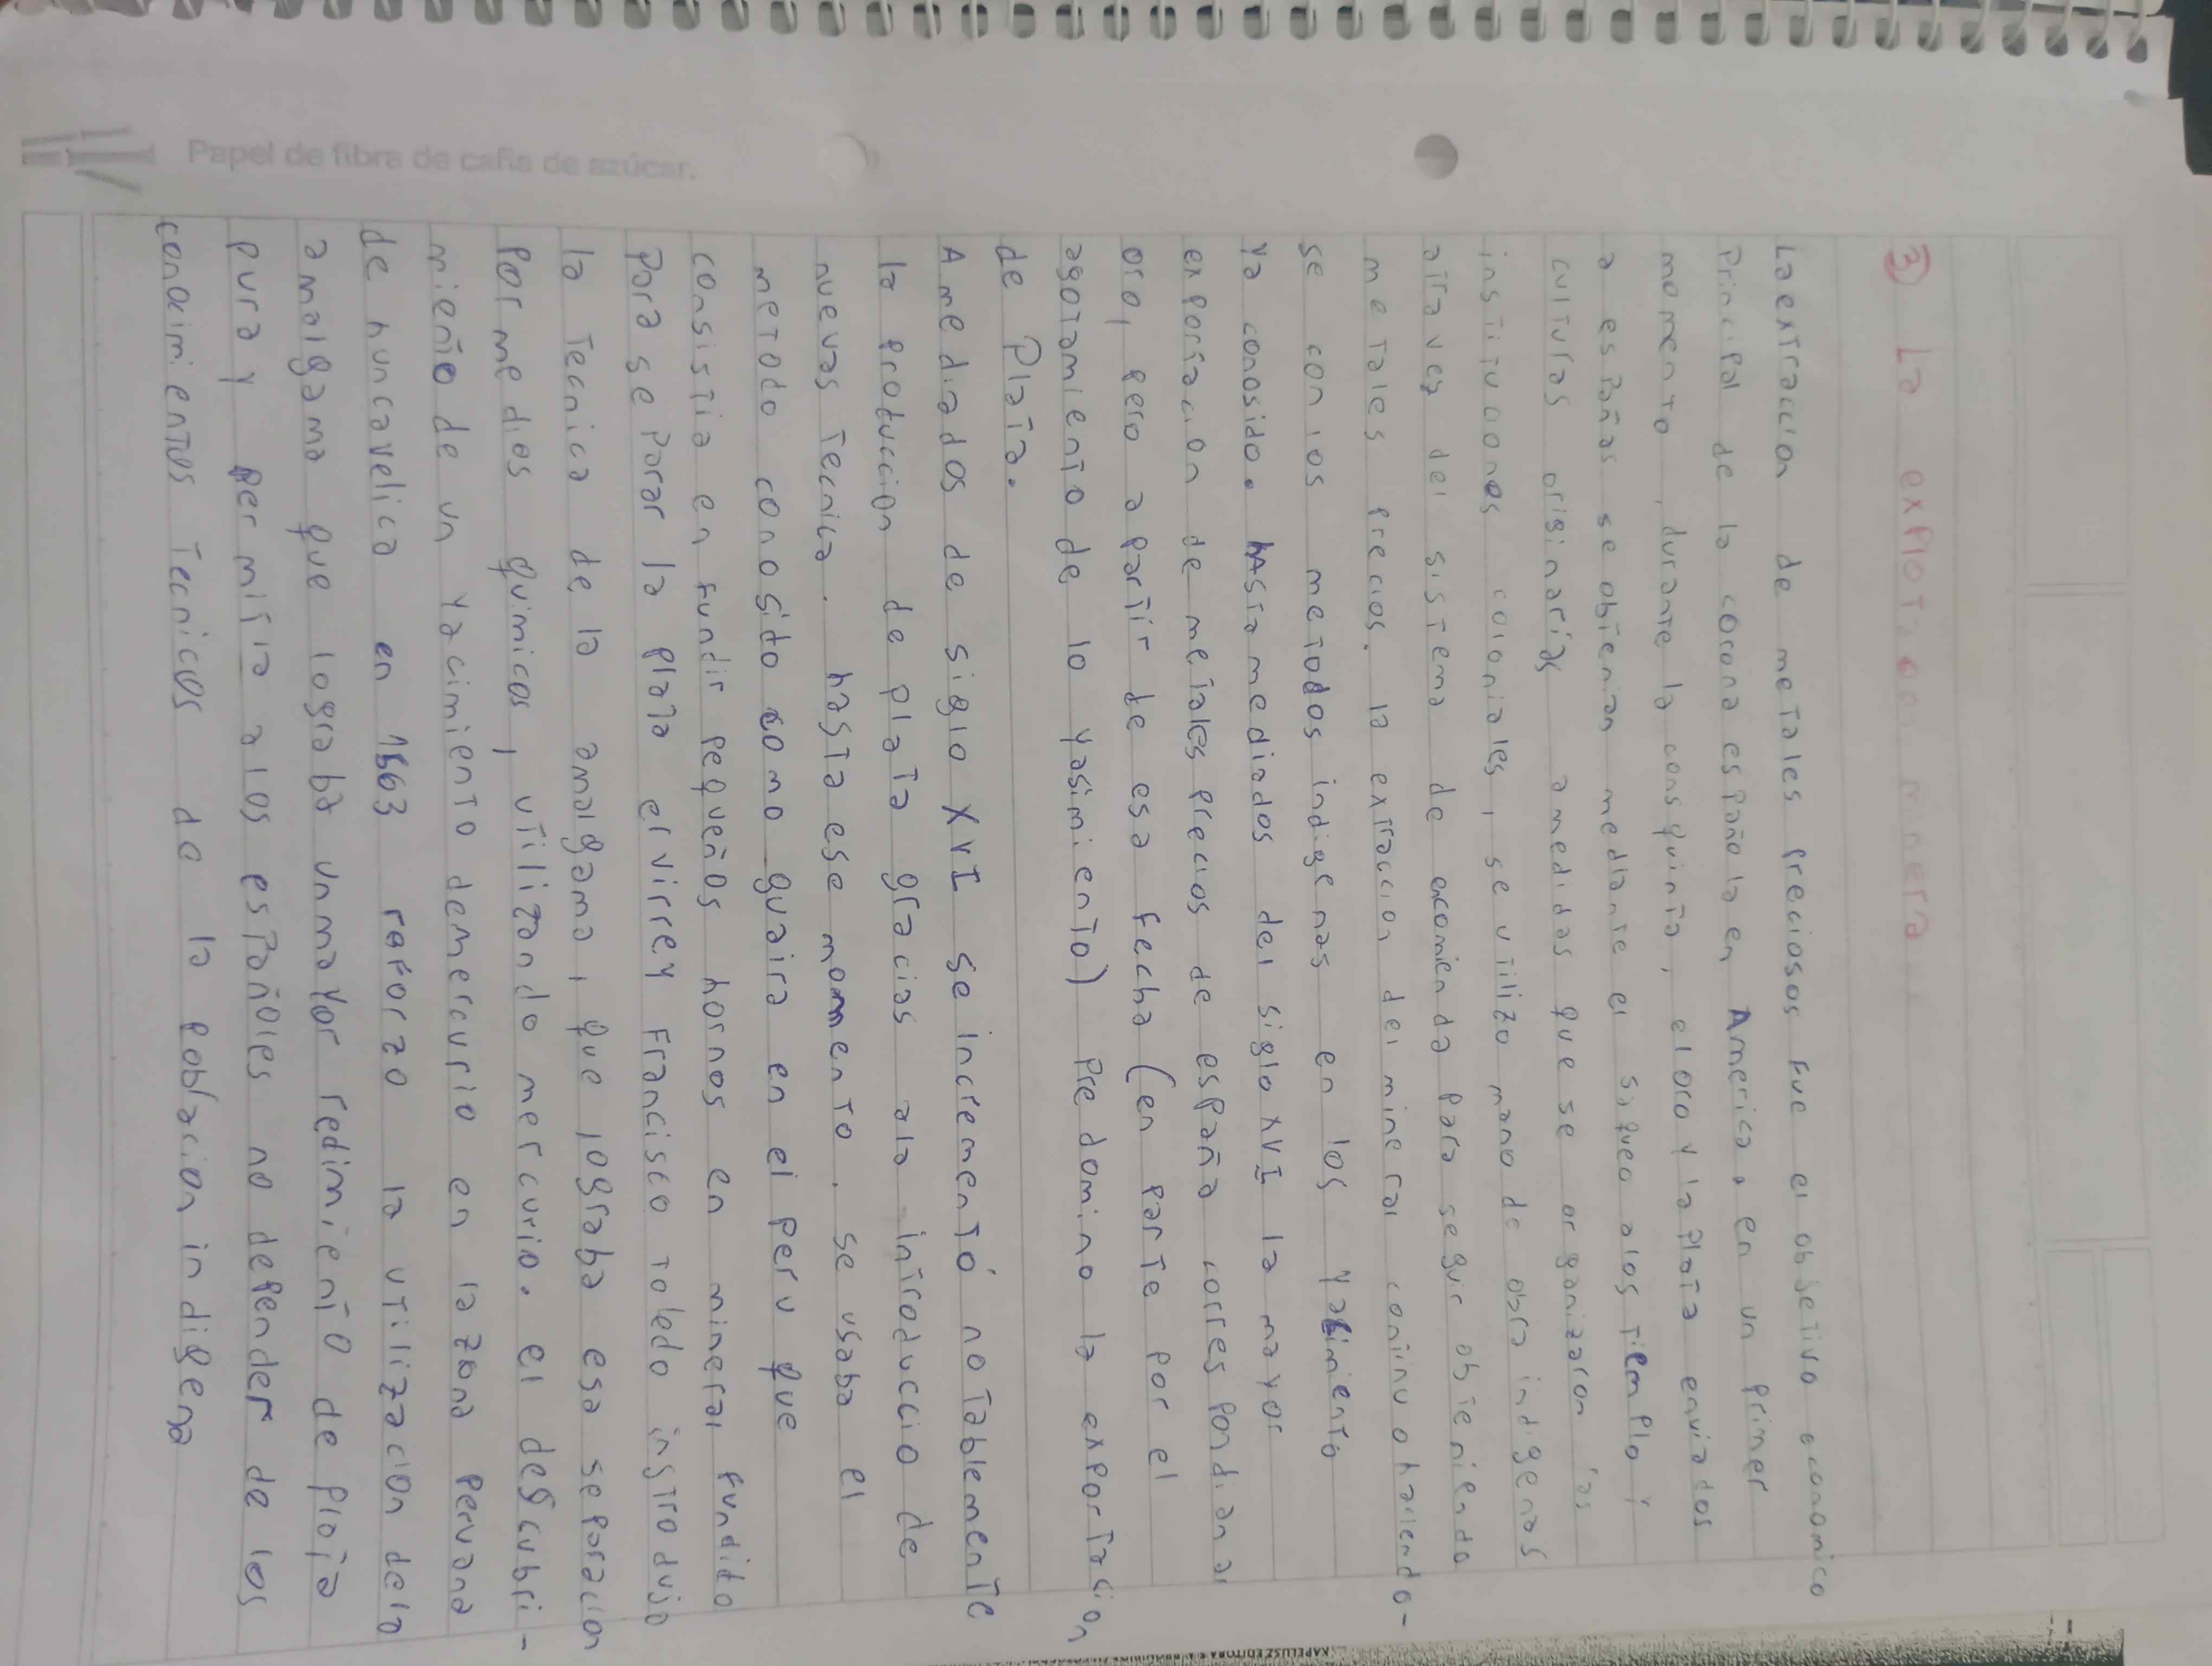 Papel de fibra de caña de azúcar.
③ La explotacion minera
La extraccion de metales preciosos fue el objetivo economico
Principal de la corona española en America. en un primer
momento, durante la consquinta, el oro y la plata enviados
a españas se obtenian mediante el saqueo a los tiemplo y
culturas originarias a medidas que se organizaron las
instituciones coloniales, se utilizo mano de obra indigenas
atravez del sistema de encomienda para seguir obteniendo
metales precios. la extraccion del mineral continuo haciendo-
se con los metodos indigenas en los yacimiento
ya conosido. hasta mediados del siglo XVI la mayor
exportacion de metales precios de españa correspondian al
oro, pero a partir de esa fecha (en parte por el
agotamiento de lo yasimiento) Predomino la exportacion
de Plata.
A mediados de siglo XVI se incrementó notablemente
la produccion de plata gracias ala introduccio de
nuevas tecnica. hasta ese momento. se usaba el
metodo conosido como guaira en el Peru que
consistia en fundir pequeños hornos en mineral fundido
Para separar la plata el virrey Francisco toledo instrodujo
la tecnica de la amalgama, que lograba esa separacion
Por medios quimicos, utilizando mercurio. el descubri-
miento de un yacimiento de mercurio en la zona Peruana
de huncavelica en 1563 reforzo la utilizacion dela
amalgama que lograba un mayor redimiento de plata
pura y permitia a los españoles no depender de los
conocimientos tecnicos de la poblacion indigena